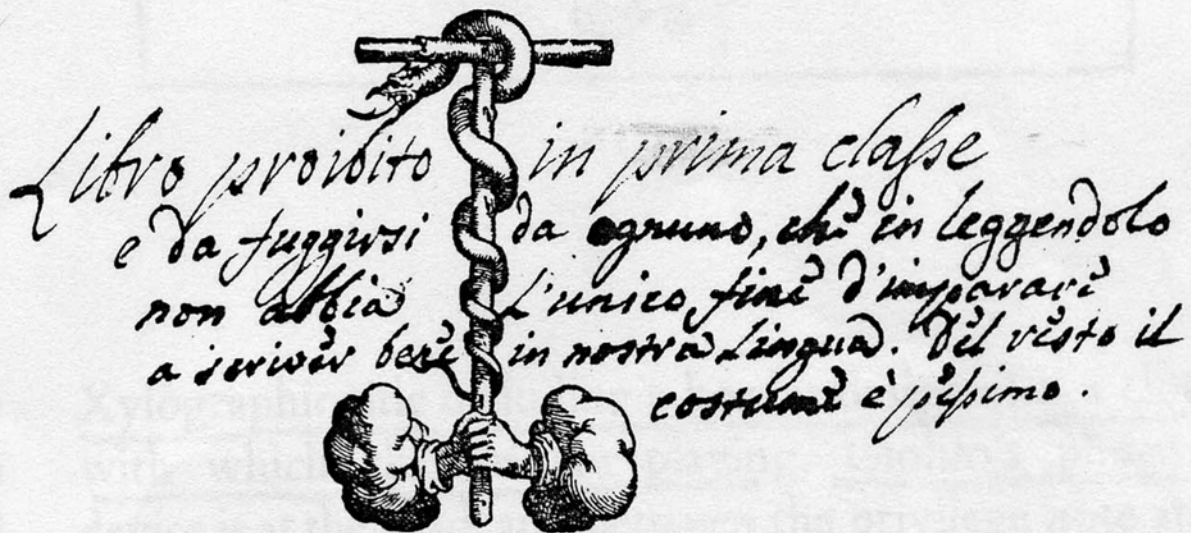 Libro proibito in prima classe
e da fuggirsi da ognuno, che in leggendolo
non abbia l'unico fine d'imparare
a scriver bene in nostra Lingua. Del resto il
costume è pessimo.